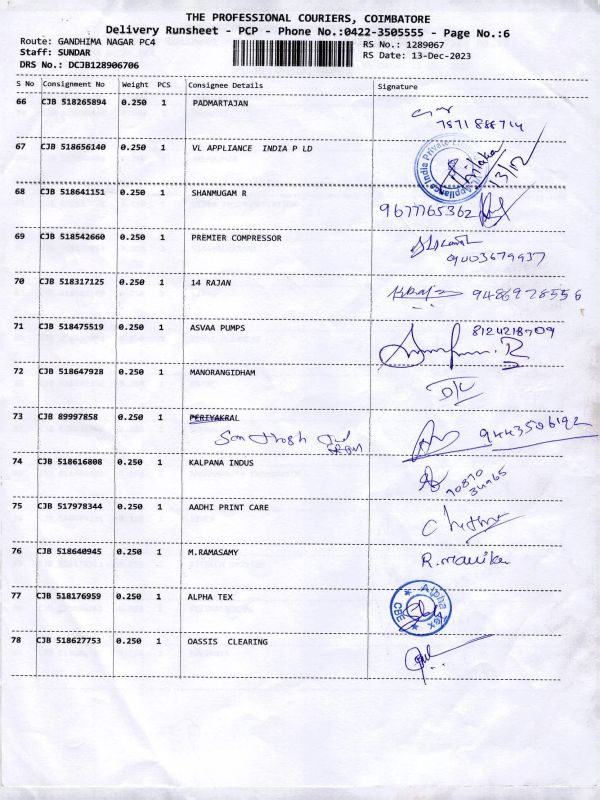 THE PROFESSIONAL COURIERS, COIMBATORE
Delivery Runsheet - PCP - Phone No.:0422-3505555 - Page No.:6
Route: GANDHIMA NAGAR PC4
RS No.: 1289067
Staff: SUNDAR
RS Date: 13-Dec-2023
DRS No.: DCJB128906706
S No Consignment No Weight PCS Consignee Details Signature
66 CJB 518265894 0.250 1 PADMARTAJAN
67 CJB 518656140 0.250 1 VL APPLIANCE INDIA P LD
Appliance India Private
13/12
68 CJB 518641151 0.250 1 SHANMUGAM R
9677765362
69 CJB 518542660 0.250 1 PREMIER COMPRESSOR
9003679937
70 CJB 518317125 0.250 1 14 RAJAN 9486928556
71 CJB 518475519 0.250 1 ASVAA PUMPS 8124218709
72 CJB 518647928 0.250 1 MANORANGIDHAM
D/L
73 CJB 89997858 0.250 1 PERIYAKRAL
Santhosh
9443506192
74 CJB 518616808 0.250 1 KALPANA INDUS
70870
34965
75 CJB 517978344 0.250 1 AADHI PRINT CARE
76 CJB 518640945 0.250 1 M.RAMASAMY
R.Manika
77 CJB 518176959 0.250 1 ALPHA TEX
Alpha Tex
CBE
78 CJB 518627753 0.250 1 OASSIS CLEARING